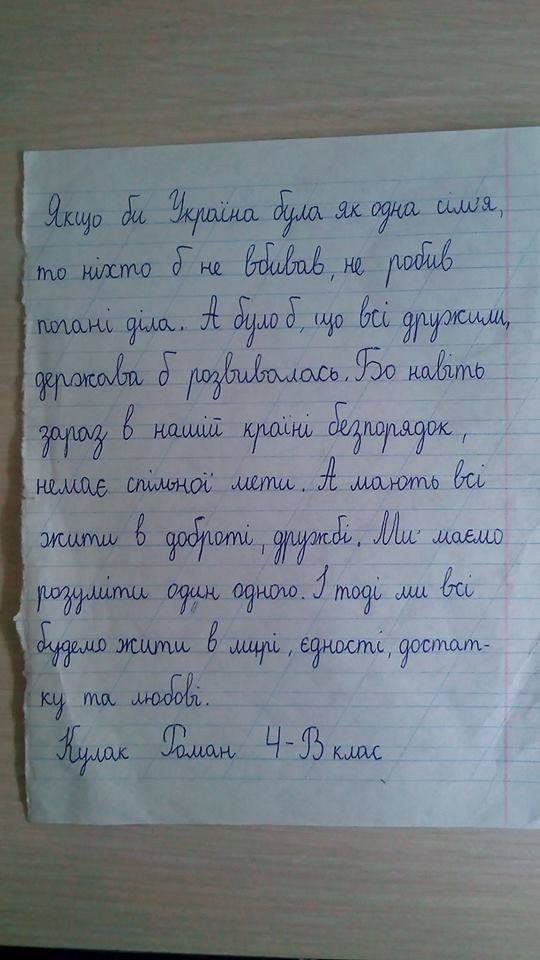 Якщо би Україна була як одна сім'я,
то ніхто б не вбивав, не робив
погані діла. А було б, що всі дружили,
держава б розвивалась. Бо навіть
зараз в нашій країні безпорядок,
немає спільної мети. А мають всі
жити в доброті, дружбі. Ми маємо
розуміти один одного. І тоді ми всі
будемо жити в мирі, єдності, достат-
ку та любові.
Кулак Роман 4-В клас